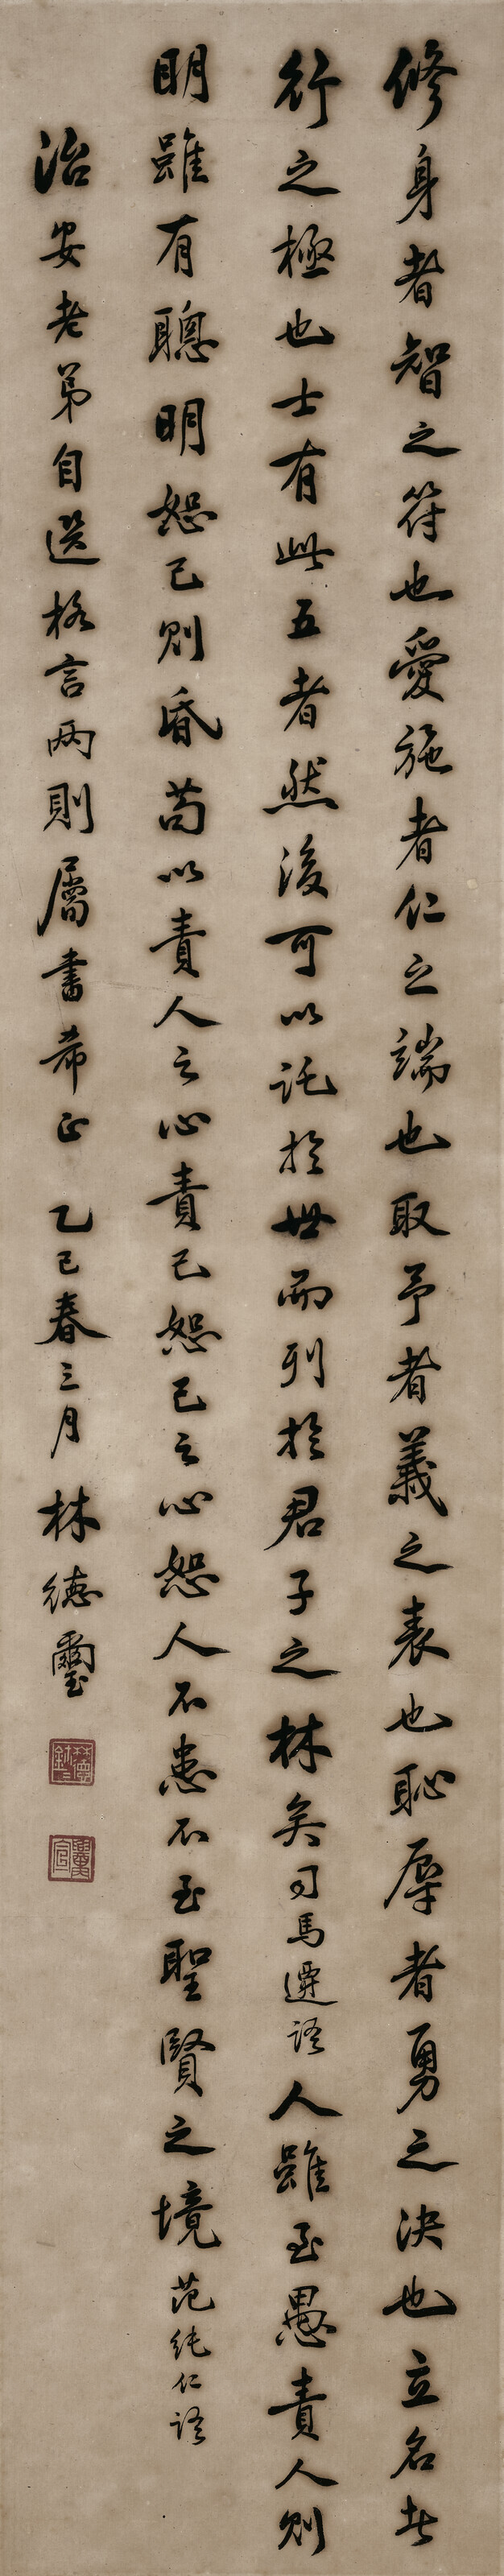 修身者智之符也愛施者仁之端也取予者義之表也恥辱者勇之決也立名者
行之極也士有此五者然後可以託於世而列於君子之林矣司馬遷語人雖至愚責人則
明雖有聰明恕己則昏苟以責人之心責己恕己之心恕人不患不至聖賢之境范純仁語
治安老弟自選格言兩則屬書希正 乙巳春三月 林德璽